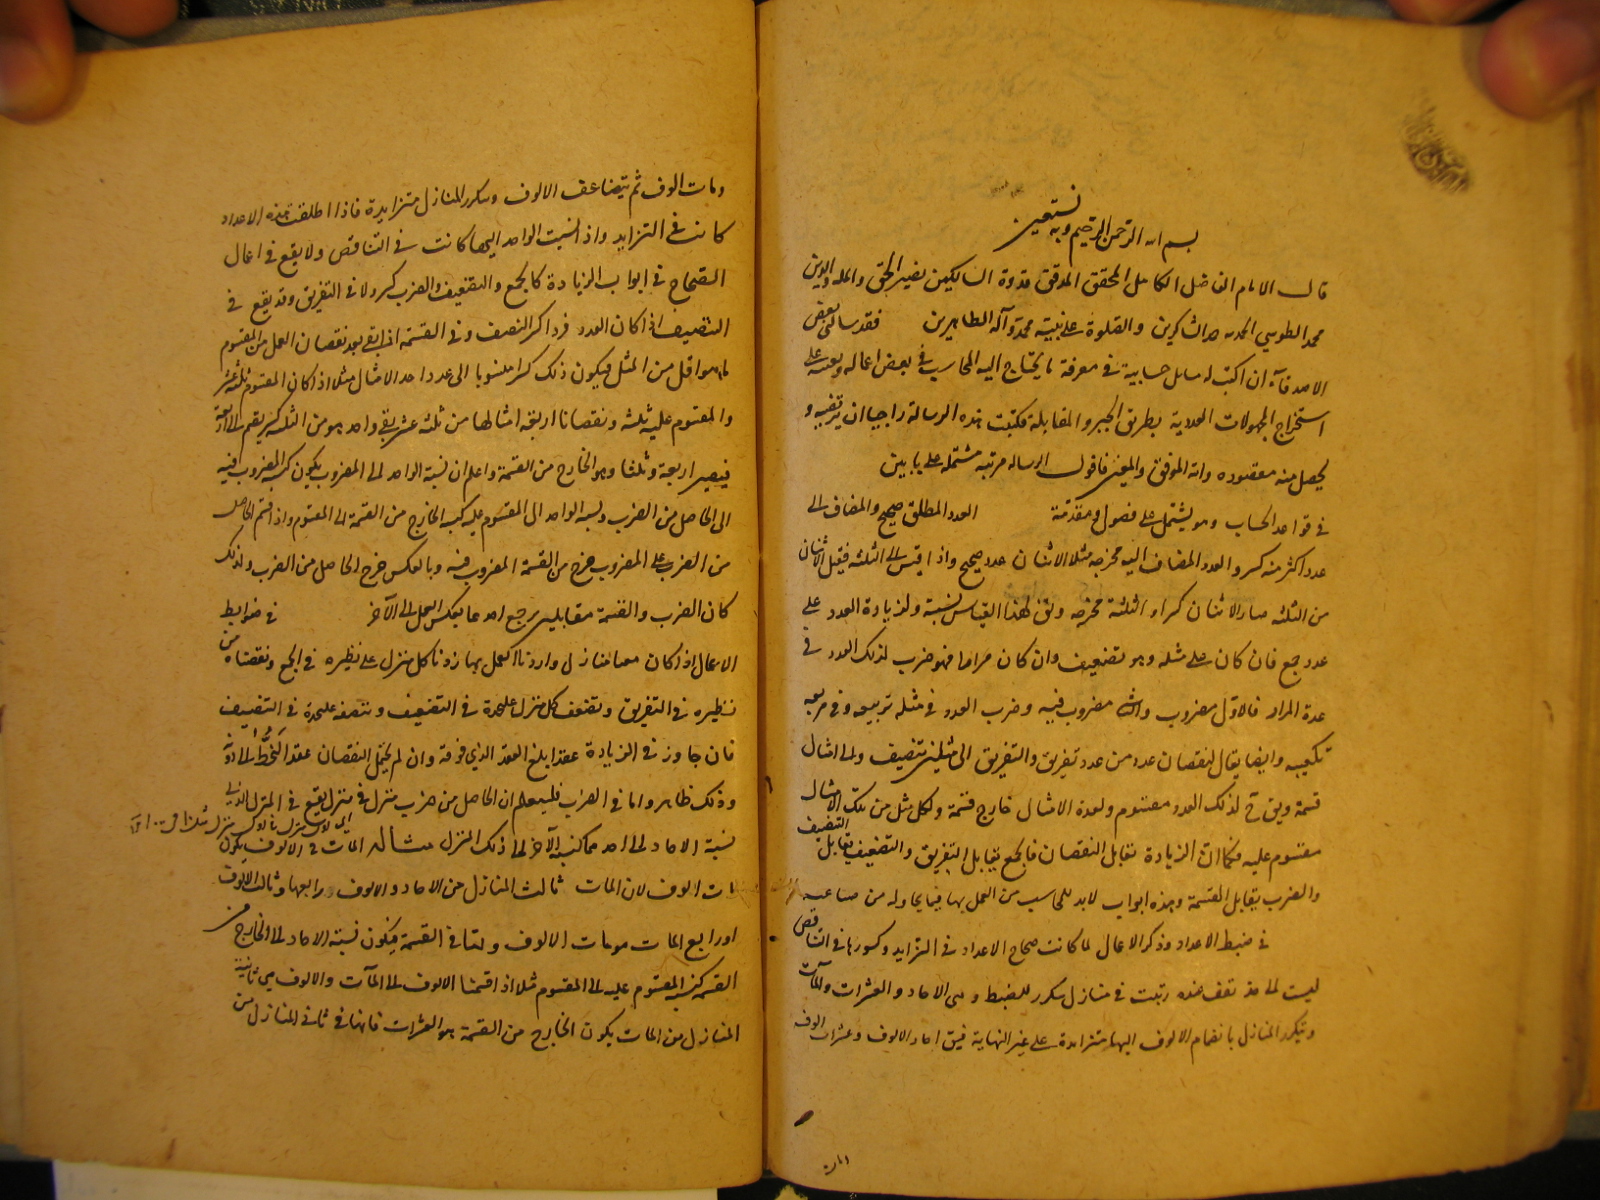 بسم الله الرحمن الرحيم وبه نستعين
قال الامام الفاضل الكامل المحقق المدقق قدوة السالكين نصير الحق والملة والدين
محمد الطوسي الحمد لله حمد الشاكرين والصلوة على نبيه محمد وآله الطاهرين فقد سالنى بعض
الاصدقاء ان اكتب له مسايل حسابية في معرفة ما يحتاج اليه المحاسب في بعض اعماله ويعينه على
استخراج المجهولات العددية بطريق الجبر والمقابلة فكتبت هذه الرسالة راجيا ان يرتضيه و
يحصل منه مقصوده والله الموفق والمعين فاقول الرسالة مرتبة مشتملة على بابين
في قواعد الحساب وهو يشتمل على فصول ومقدمة العدد المطلق صحيح والمضاف الى
عدد اكثر منه كسر والعدد المضاف اليه مخرجه مثلا الاثنان عدد صحيح واذا قيس الى الثلثة فقيل الاثنان
من الثلثه صار الاثنان كسرا والثلثة مخرجه ويق لهذا القياس نسبة ولزيادة العدد على
عدد جمع فان كان على مثله وهو تضعيف وان كان مرارا فهو ضرب لذلك العدد في
عدة المرار فالاول مضروب والثاني مضروب فيه وضرب العدد في مثله تربيع وفي مربعه
تكعيب وايضا يقال لنقصان عدد من عدد تفريق والتفريق الى مثلين تنصيف والى امثال
قسمة ويق ح لذلك العدد مقسوم ولعدة الامثال خارج قسمة ولكل مثل من تلك الامثال
مقسوم عليه فكما ان الزيادة تقابل النقصان فالجمع يقابل التفريق والتضعيف يقابل التنصيف
والضرب يقابل القسمة وهذه ابواب لابد للمحاسب من العمل بها فيما يحاوله من صناعته
في ضبط الاعداد وذكر الاعمال لما كانت صحاح الاعداد في التزايد وكسورها في التناقص
ليست لها حد تقف عنده رتبت في منازل تتكرر للضبط وهى الاحاد والعشرات والمآت
وتتكرر المنازل بانضمام الالوف اليها متزايدة على غير النهاية فيق احاد الالوف وعشرات الوف
ومات الوف ثم يتضاعف الالوف وتتكرر المنازل متزايدة فاذا اطلقت هذه الاعداد
كانت في التزايد واذا نسبت الواحد اليها كانت في التناقص ولا يقع في اعمال
الصحاح في ابواب الزيادة كالجمع والتضعيف والضرب كسر ولا في التفريق وقد يقع في
التنصيف اذا كان العدد فردا كسر النصف وفي القسمة اذا بقى بعد نقصان العمل من المقسوم
ما هو اقل من المثل فيكون ذلك كسرا منسوبا الى عدد احد الامثال مثلا اذا كان المقسوم ثلثة عشر
والمقسوم عليه ثلثه ونقصنا اربعة امثالها من ثلثة عشر بقى واحد هو من الثلثة كسر يضم الى الاربعة
فيصير اربعة وثلثا وهو الخارج من القسمة واعلم ان نسبة الواحد الى المضروب يكون كنسبة المضروب فيه
الى الحاصل من الضرب ونسبة الواحد الى المقسوم عليه كنسبة الخارج من القسمة الى المقسوم واذا قسم الحاصل
من الضرب على المضروب خرج من القسمة المضروب فيه وبالعكس خرج الحاصل من الضرب ولذلك
كان الضرب والقسمة متقابلين يرجع احدهما بعكس العمل الى الآخر في ضوابط
الاعمال اذا كان معنا منازل واردنا العمل بها زدنا كل منزل على نظيره في الجمع ونقصناه من
نظيره في التفريق ونضعف كل منزل على حدة في التضعيف وننصفه على حدة في التنصيف
فان جاوز في الزيادة عقدا بلغ العقد الذي فوقه وان لم يحتمل النقصان عقد انحط الى ما دونه
وذلك ظاهر واما في الضرب فليعلم ان الحاصل من ضرب منزل في منزل يقع في المنزل الذى
نسبة الاحاد الى احدهما كنسبة الآخر الى ذلك المنزل مثاله المات في الالوف يكون
مات الوف لان المات ثالث المنازل من الاحاد والالوف رابعها وثالث الالوف
او رابع المات هو مات الالوف واما في القسمة فيكون نسبة الاحاد الى الخارج من
القسمة كنسبة المقسوم عليه الى المقسوم مثلا اذا قسمنا الالوف الى المآت والالوف هى ثانية
المنازل من المات يكون الخارج من القسمة هو العشرات فانها في ثانى المنازل من